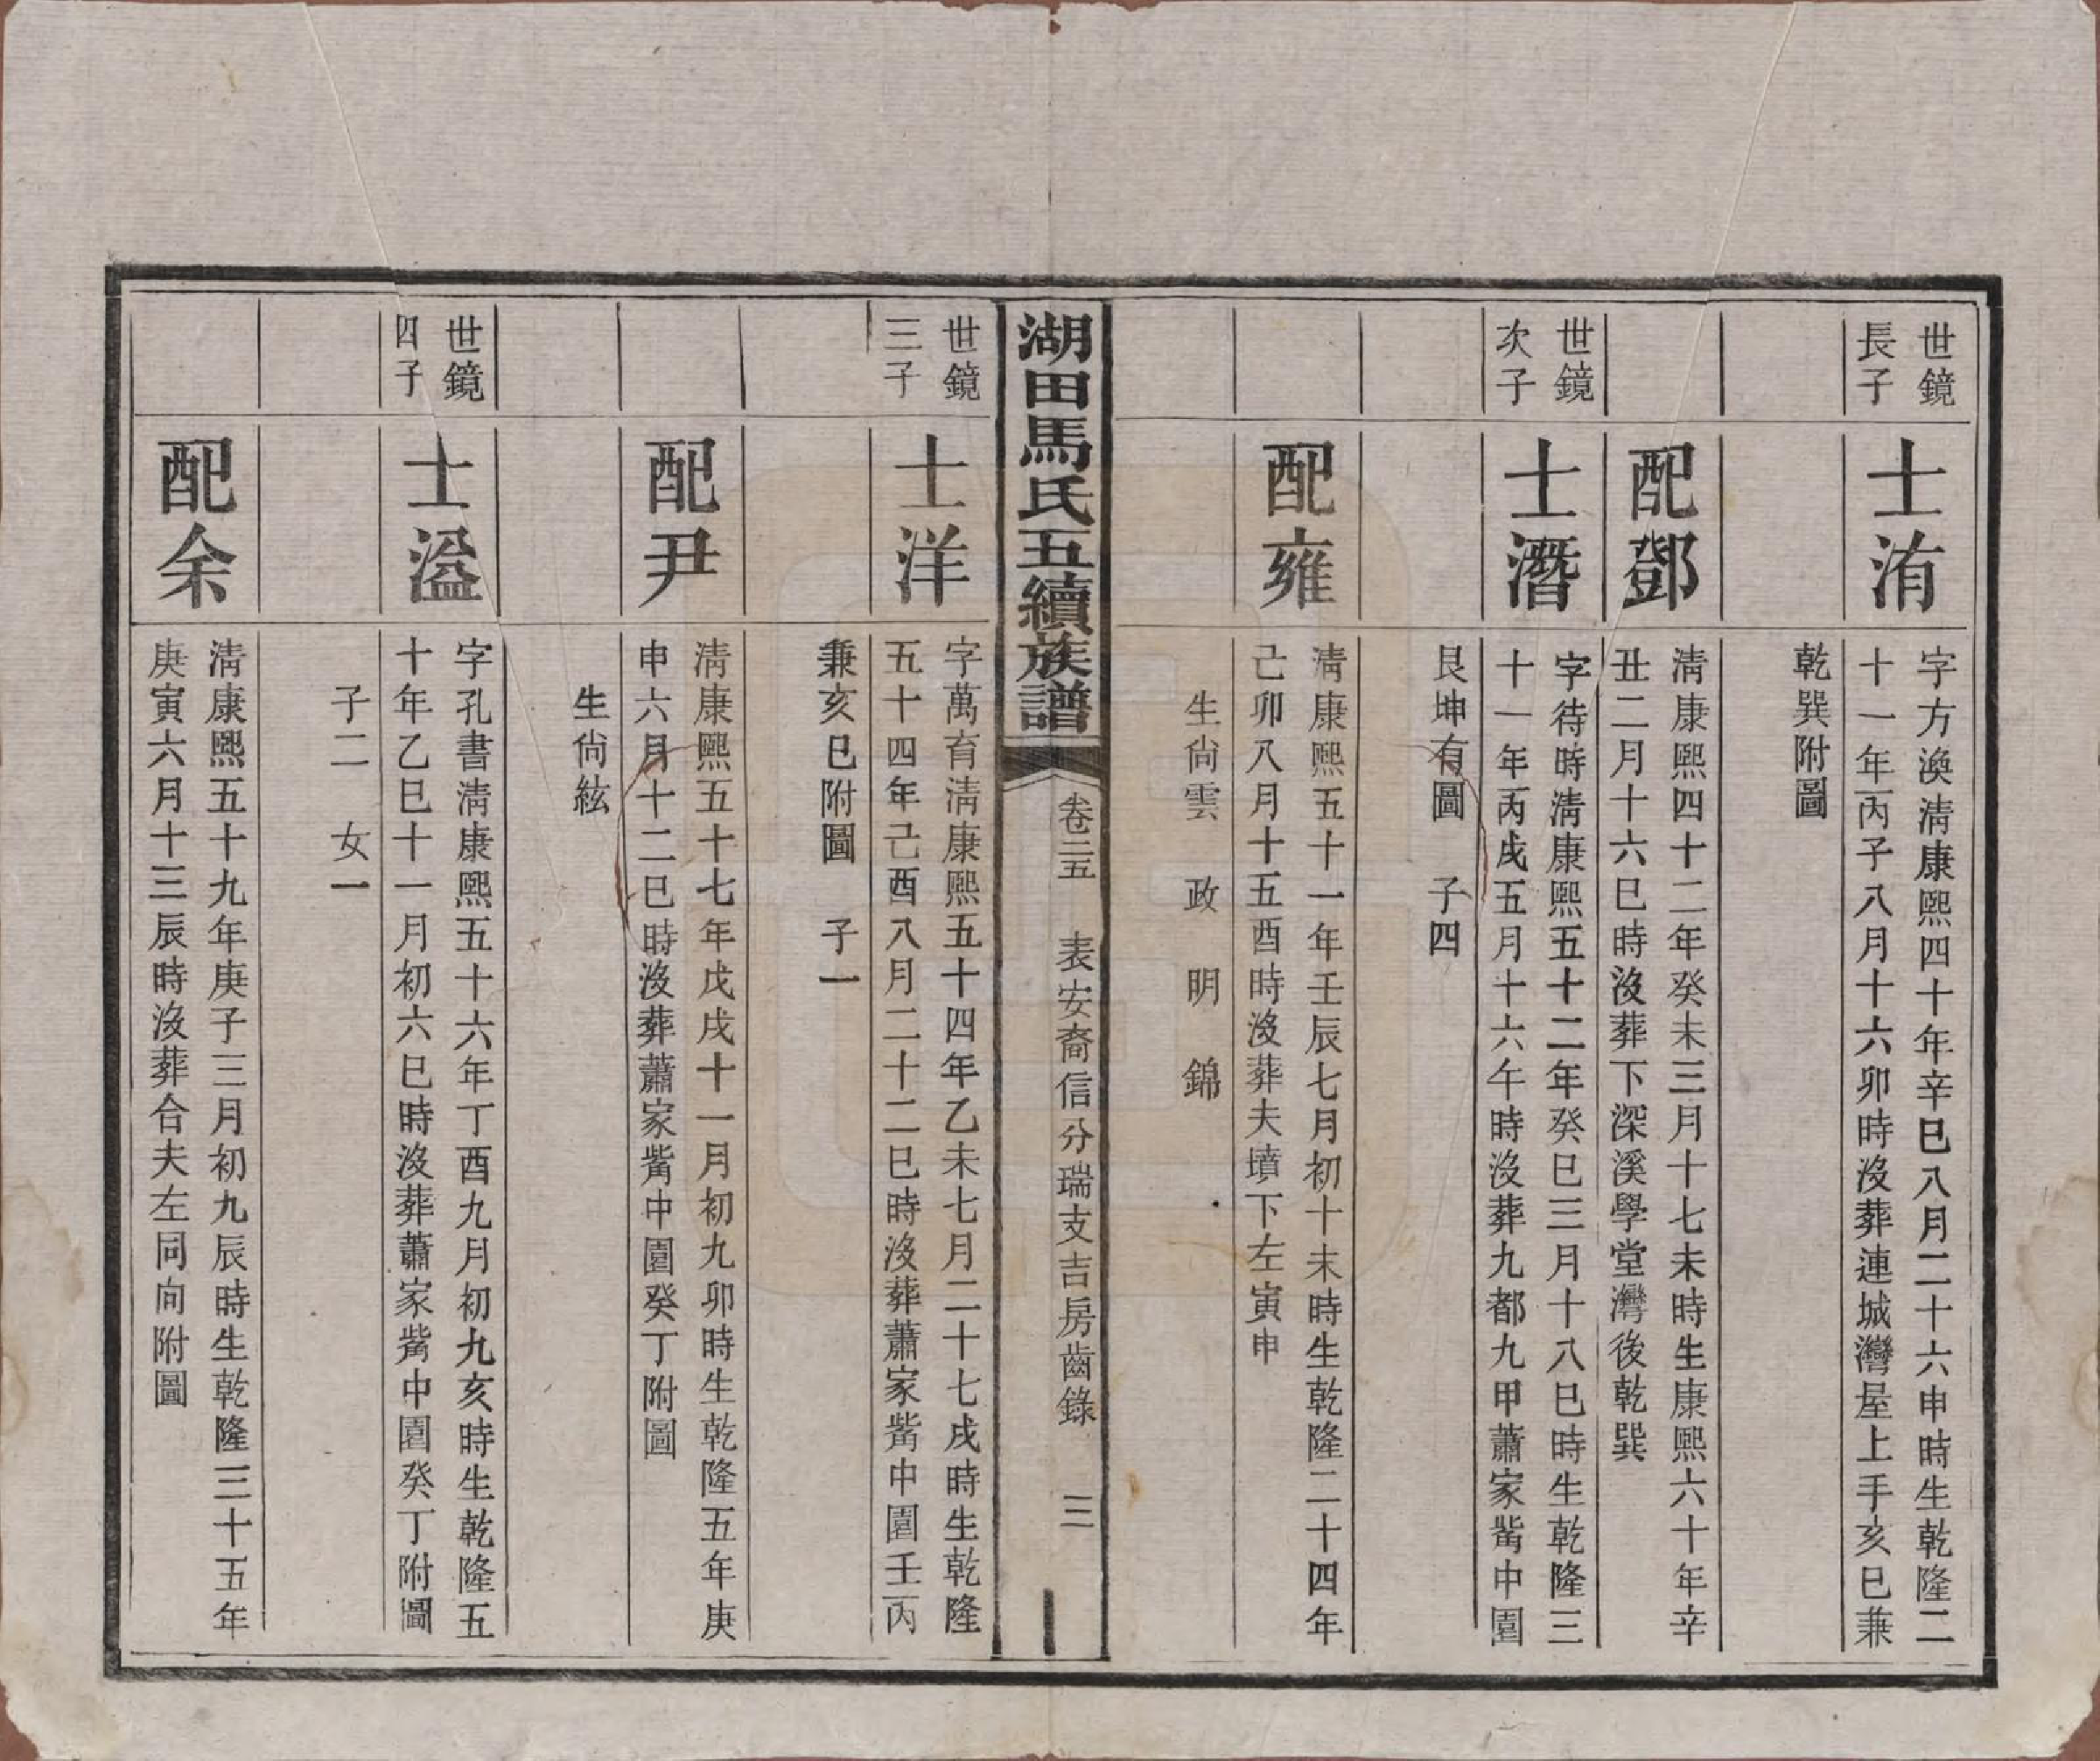 世鏡
長子
士洧
字方渙淸康熙四十年辛巳八月二十六申時生乾隆二
十一年丙子八月十六卯時沒葬連城灣屋上手亥巳兼
乾巽附圖
配鄧
淸康熙四十二年癸未三月十七未時生康熙六十年辛
丑二月十六巳時沒葬下深溪學堂灣後乾巽
世鏡
次子
士潛
字待時淸康熙五十二年癸巳三月十八巳時生乾隆三
十一年丙戌五月十六午時沒葬九都九甲蕭家觜中園
艮坤有圖 子四
配雍
淸康熙五十一年壬辰七月初十未時生乾隆二十四年
己卯八月十五酉時沒葬夫墳下左寅申
生尙雲 政 明 錦
湖田馬氏五續族譜
卷二五 表安裔信分瑞支吉房齒錄 三
世鏡
三子
士洋
字萬育淸康熙五十四年乙未七月二十七戌時生乾隆
五十四年己酉八月二十二巳時沒葬蕭家觜中園壬丙
兼亥巳附圖 子一
配尹
淸康熙五十七年戊戌十一月初九卯時生乾隆五年庚
申六月十二巳時沒葬蕭家觜中園癸丁附圖
生尙絃
世鏡
四子
士溢
字孔書淸康熙五十六年丁酉九月初九亥時生乾隆五
十年乙巳十一月初六巳時沒葬蕭家觜中園癸丁附圖
子二 女一
配余
淸康熙五十九年庚子三月初九辰時生乾隆三十五年
庚寅六月十三辰時沒葬合夫左同向附圖